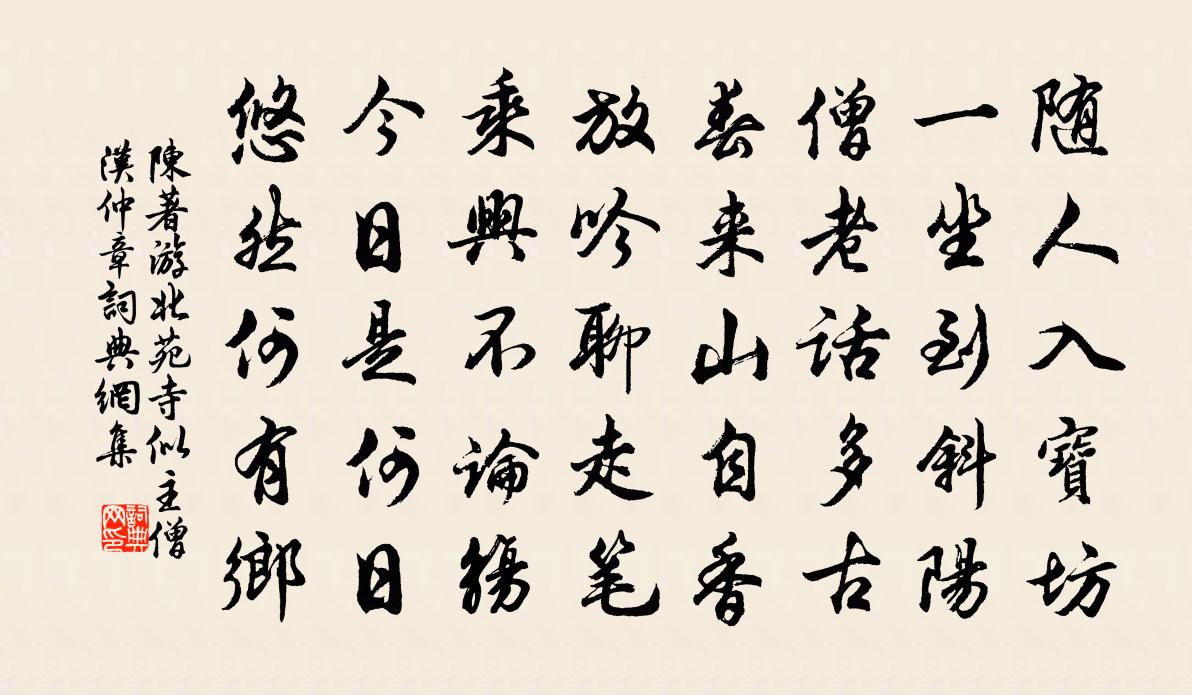 随人入寶坊
一坐到斜陽
僧老話多古
春来山自香
放吟聊走笔
乘興不論觴
今日是何日
悠然何有鄉
陳著游北苑寺似主僧
漢仲章詞典網集
詞典网印